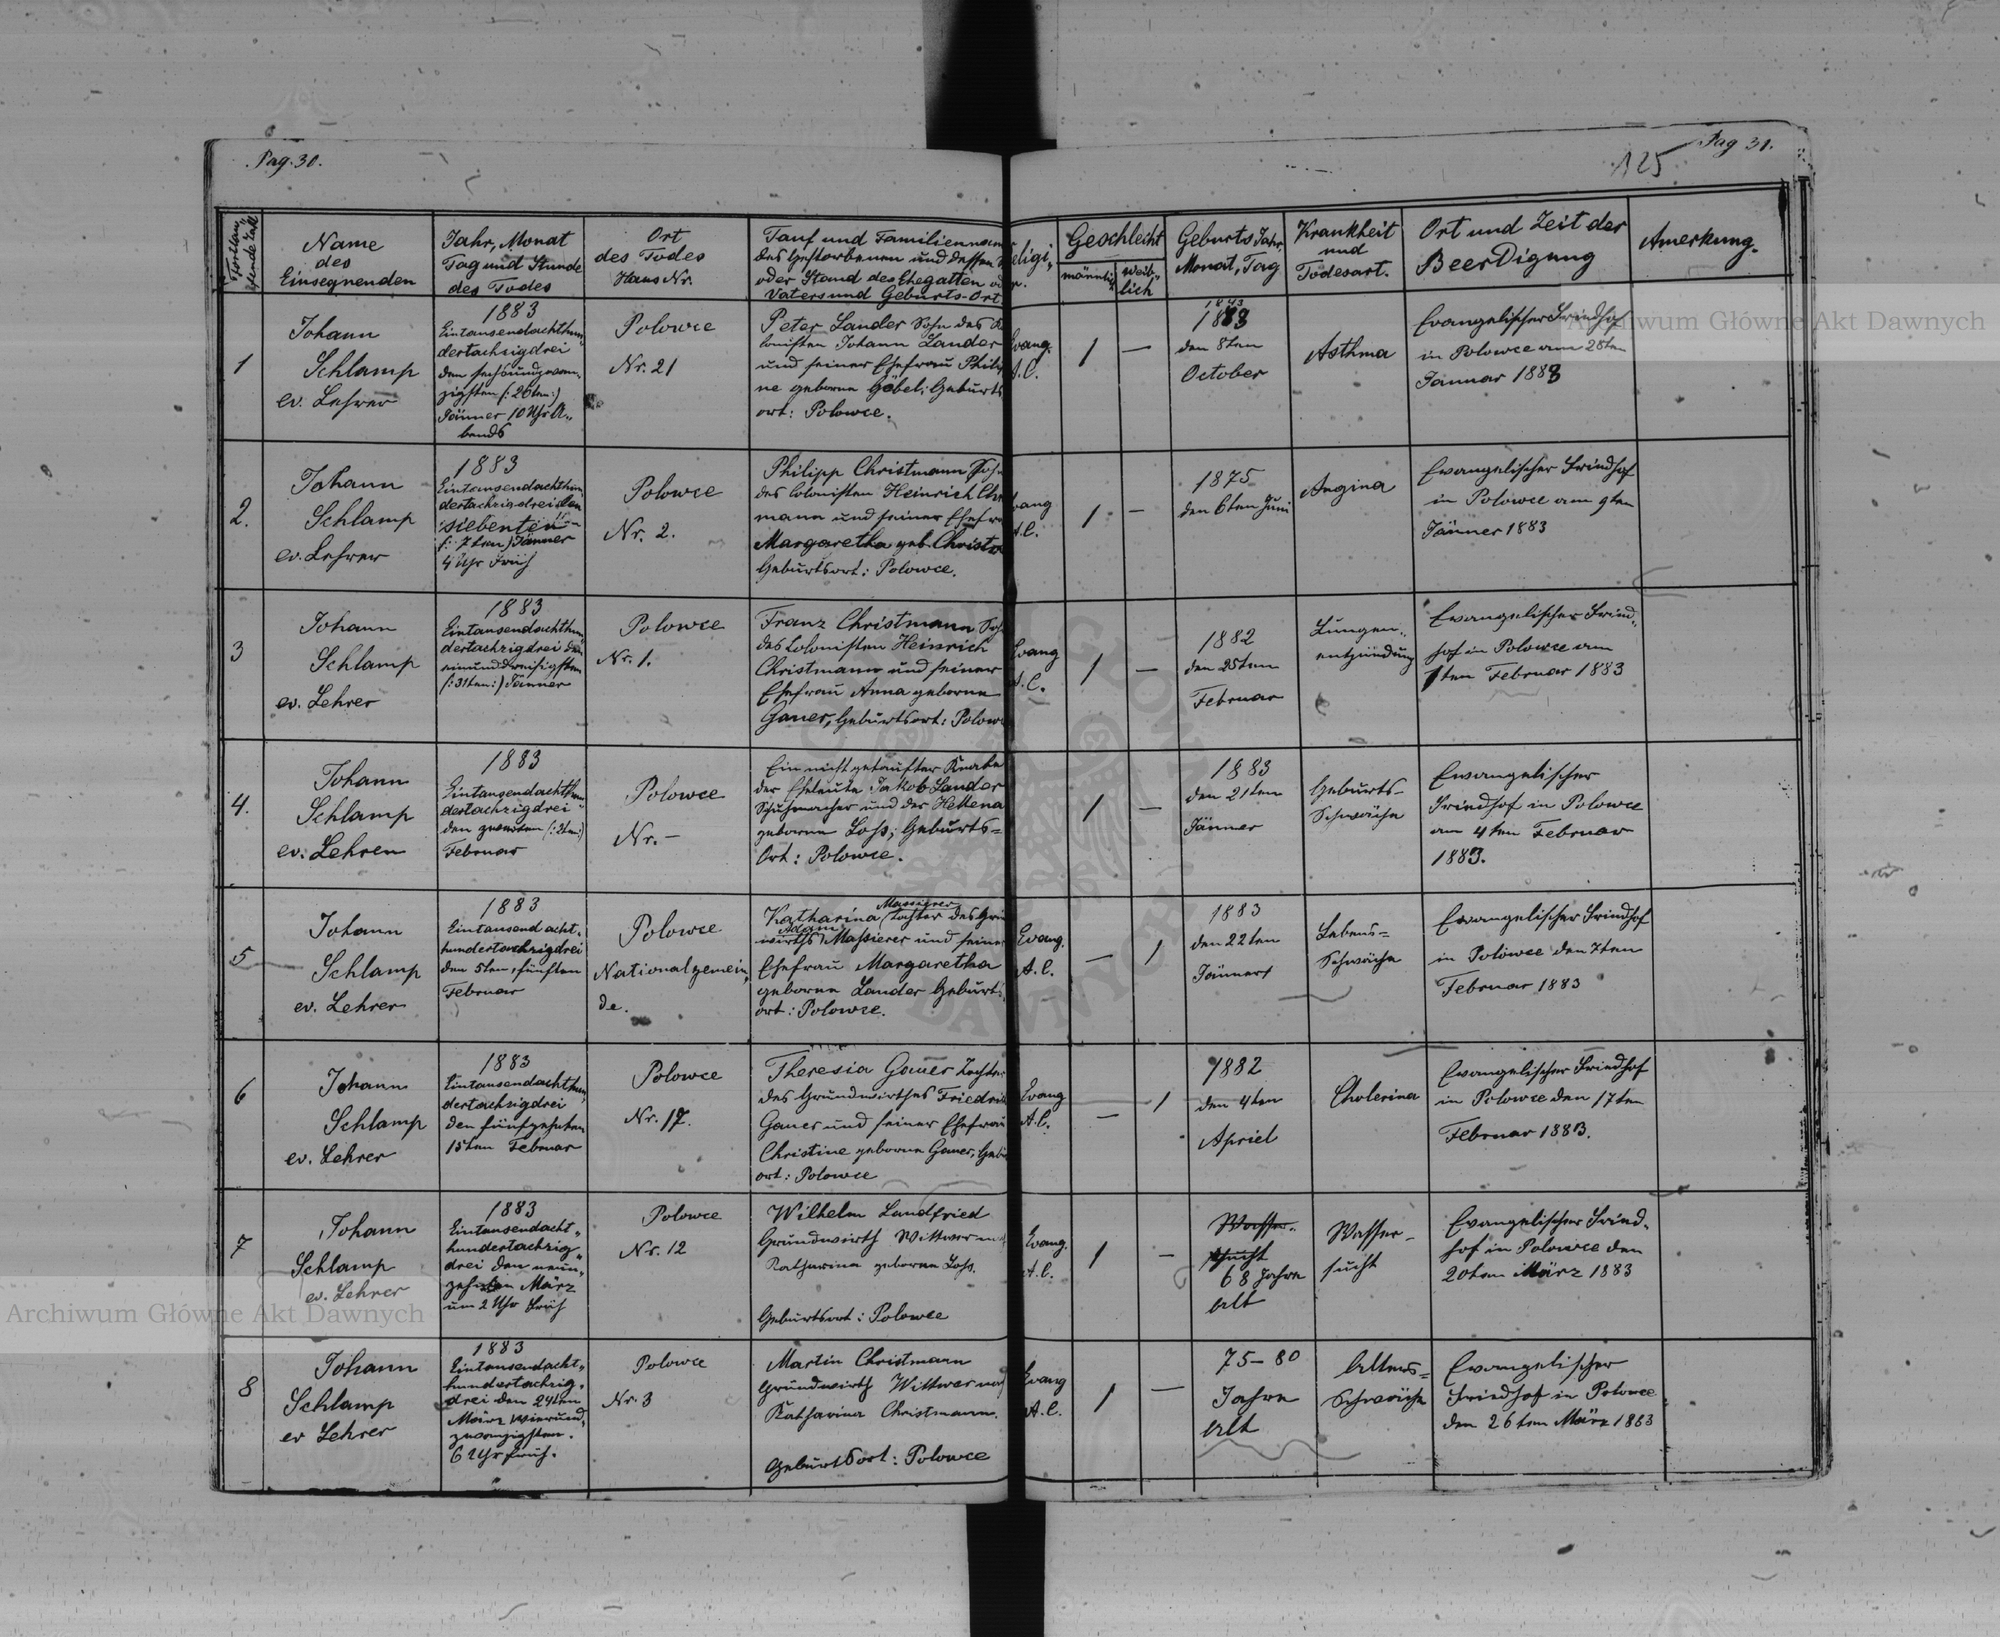 Pag. 30.
Pag 31.
125
Name
des
Einsegnenden
Jahr, Monat
Tag und Stunde
des Todes
Ort
des Todes
Haus Nr.
Tauf und Familienname
des Gestorbenen und dessen
oder Stand des Ehegatten
Vaters und Geburts-Ort
Religi-
Geschlecht
männlich
weib-
lich
Geburts Jahr
Monat, Tag
Krankheit
und
Todesart.
Ort und Zeit der
Beerdigung
Amerkung.
1
Johann
Schlamp
ev. Lehrer
1883
Eintausendachthun
dertachzigdrei
den sechsundzwan
zigsten (: 26ten :)
Jänner 10 Uhr A-
bends
Polowce
Nr. 21
Peter Lander Sohn des Ko
lonisten Johann Lander
und seiner Ehefrau Philip
ne geborne Göbel; Geburts
ort: Polowce.
Evang.
A.C.
1 —
1843
1883
den 8ten
October
Asthma
Evangelischer Friedhof
in Polowce am 28ten
Januar 1883
2.
Johann
Schlamp
ev. Lehrer
1883
Eintausendachthun
dertachzigdrei den
siebenten
(: 7ten) Jänner
4 Uhr Früh
Polowce
Nr. 2.
Philipp Christmann Sohn
des Colonisten Heinrich Chr
mann und seiner Ehefra
Margaretha geb. Christ
Geburtsort: Polowce.
Evang
A.C.
1 —
1875
den 6ten Juni
Angina
Evangelischer Friedhof
in Polowce am 9ten
Jänner 1883
3
Johann
Schlamp
ev. Lehrer
1883
Eintausendachthun
dertachzigdrei den
einunddreisigsten
(: 31ten :) Jänner
Polowce
Nr. 1.
Franz Christmann Sohn
des Colonisten Heinrich
Christmann und seiner
Ehefrau Anna geborne
Gauer, Geburtsort: Polowce
Evang
A.C.
1 —
1882
den 25ten
Februar
Lungen-
entzündung
Evangelischer Fried-
hof in Polowce am
1ten Februar 1883
4.
Johann
Schlamp
ev. Lehrer
1883
Eintausendachthun
dertachzigdrei
den zweiten (: 2ten :)
Februar
Polowce
Nr. —
Ein nicht getaufter Knabe
der Eheleute Jakob Lander
Schuhmacher und der Hellena
geborne Loss; Geburts-
Ort: Polowce.
1 —
1883
den 21ten
Jänner
Geburts-
Schwäche
Evangelischer
Friedhof in Polowce
am 4ten Februar
1883.
5
Johann
Schlamp
ev. Lehrer
1883
Eintausend acht-
hundertachzigdrei
den 5ten, fünften
Februar
Polowce
Nationalgemein-
de.
Massierer
Katharina, Tochter des Grun
Adam
wirths Massierer und seiner
Ehefrau Margaretha
geborne Lander Geburts
ort: Polowce.
Evang.
A.C.
— 1
1883
den 22ten
Jänner
Lebens-
Schwäche
Evangelischer Friedhof
in Polowce den 7ten
Februar 1883
6
Johann
Schlamp
ev. Lehrer
1883
Eintausendachthun
dertachzigdrei
den fünfzehnten
15ten Februar
Polowce
Nr. 17.
Theresia Gauer Tochter
des Grundwirthes Friedrich
Gauer und seiner Ehefrau
Christine geborne Gauer, Gebu
ort: Polowce
Evang
A.C.
— 1
1882
den 4ten
Apriel
Cholerina
Evangelischer Friedhof
in Polowce den 17ten
Februar 1883.
7
Johann
Schlamp
ev. Lehrer
1883
Eintausendacht-
hundertachzig-
drei den neun-
zehnten März
um 2 Uhr Früh
Polowce
Nr. 12
Wilhelm Landfried
Grundwirth Wittwer nach
Katharina geborne Loss.
Geburtsort: Polowce
Evang.
A.C.
1 —
Wasser-
sucht
68 Jahre
alt
Wasser-
sucht
Evangelischer Fried-
hof in Polowce den
20ten März 1883
8
Johann
Schlamp
ev Lehrer
1883
Eintausendacht-
hundertachzig-
drei den 24ten
März vierund-
zwanzigsten.
6 Uhr Früh.
Polowce
Nr. 3
Martin Christmann
Grundwirth Wittwer nach
Katharina Christmann.
Geburtsort: Polowce
Evang
A.C.
1 —
75-80
Jahre
alt
Alters-
Schwäche
Evangelischer
Friedhof in Polowce
den 26ten März 1883
Archiwum Główne Akt Dawnych
Archiwum Główne Akt Dawnych